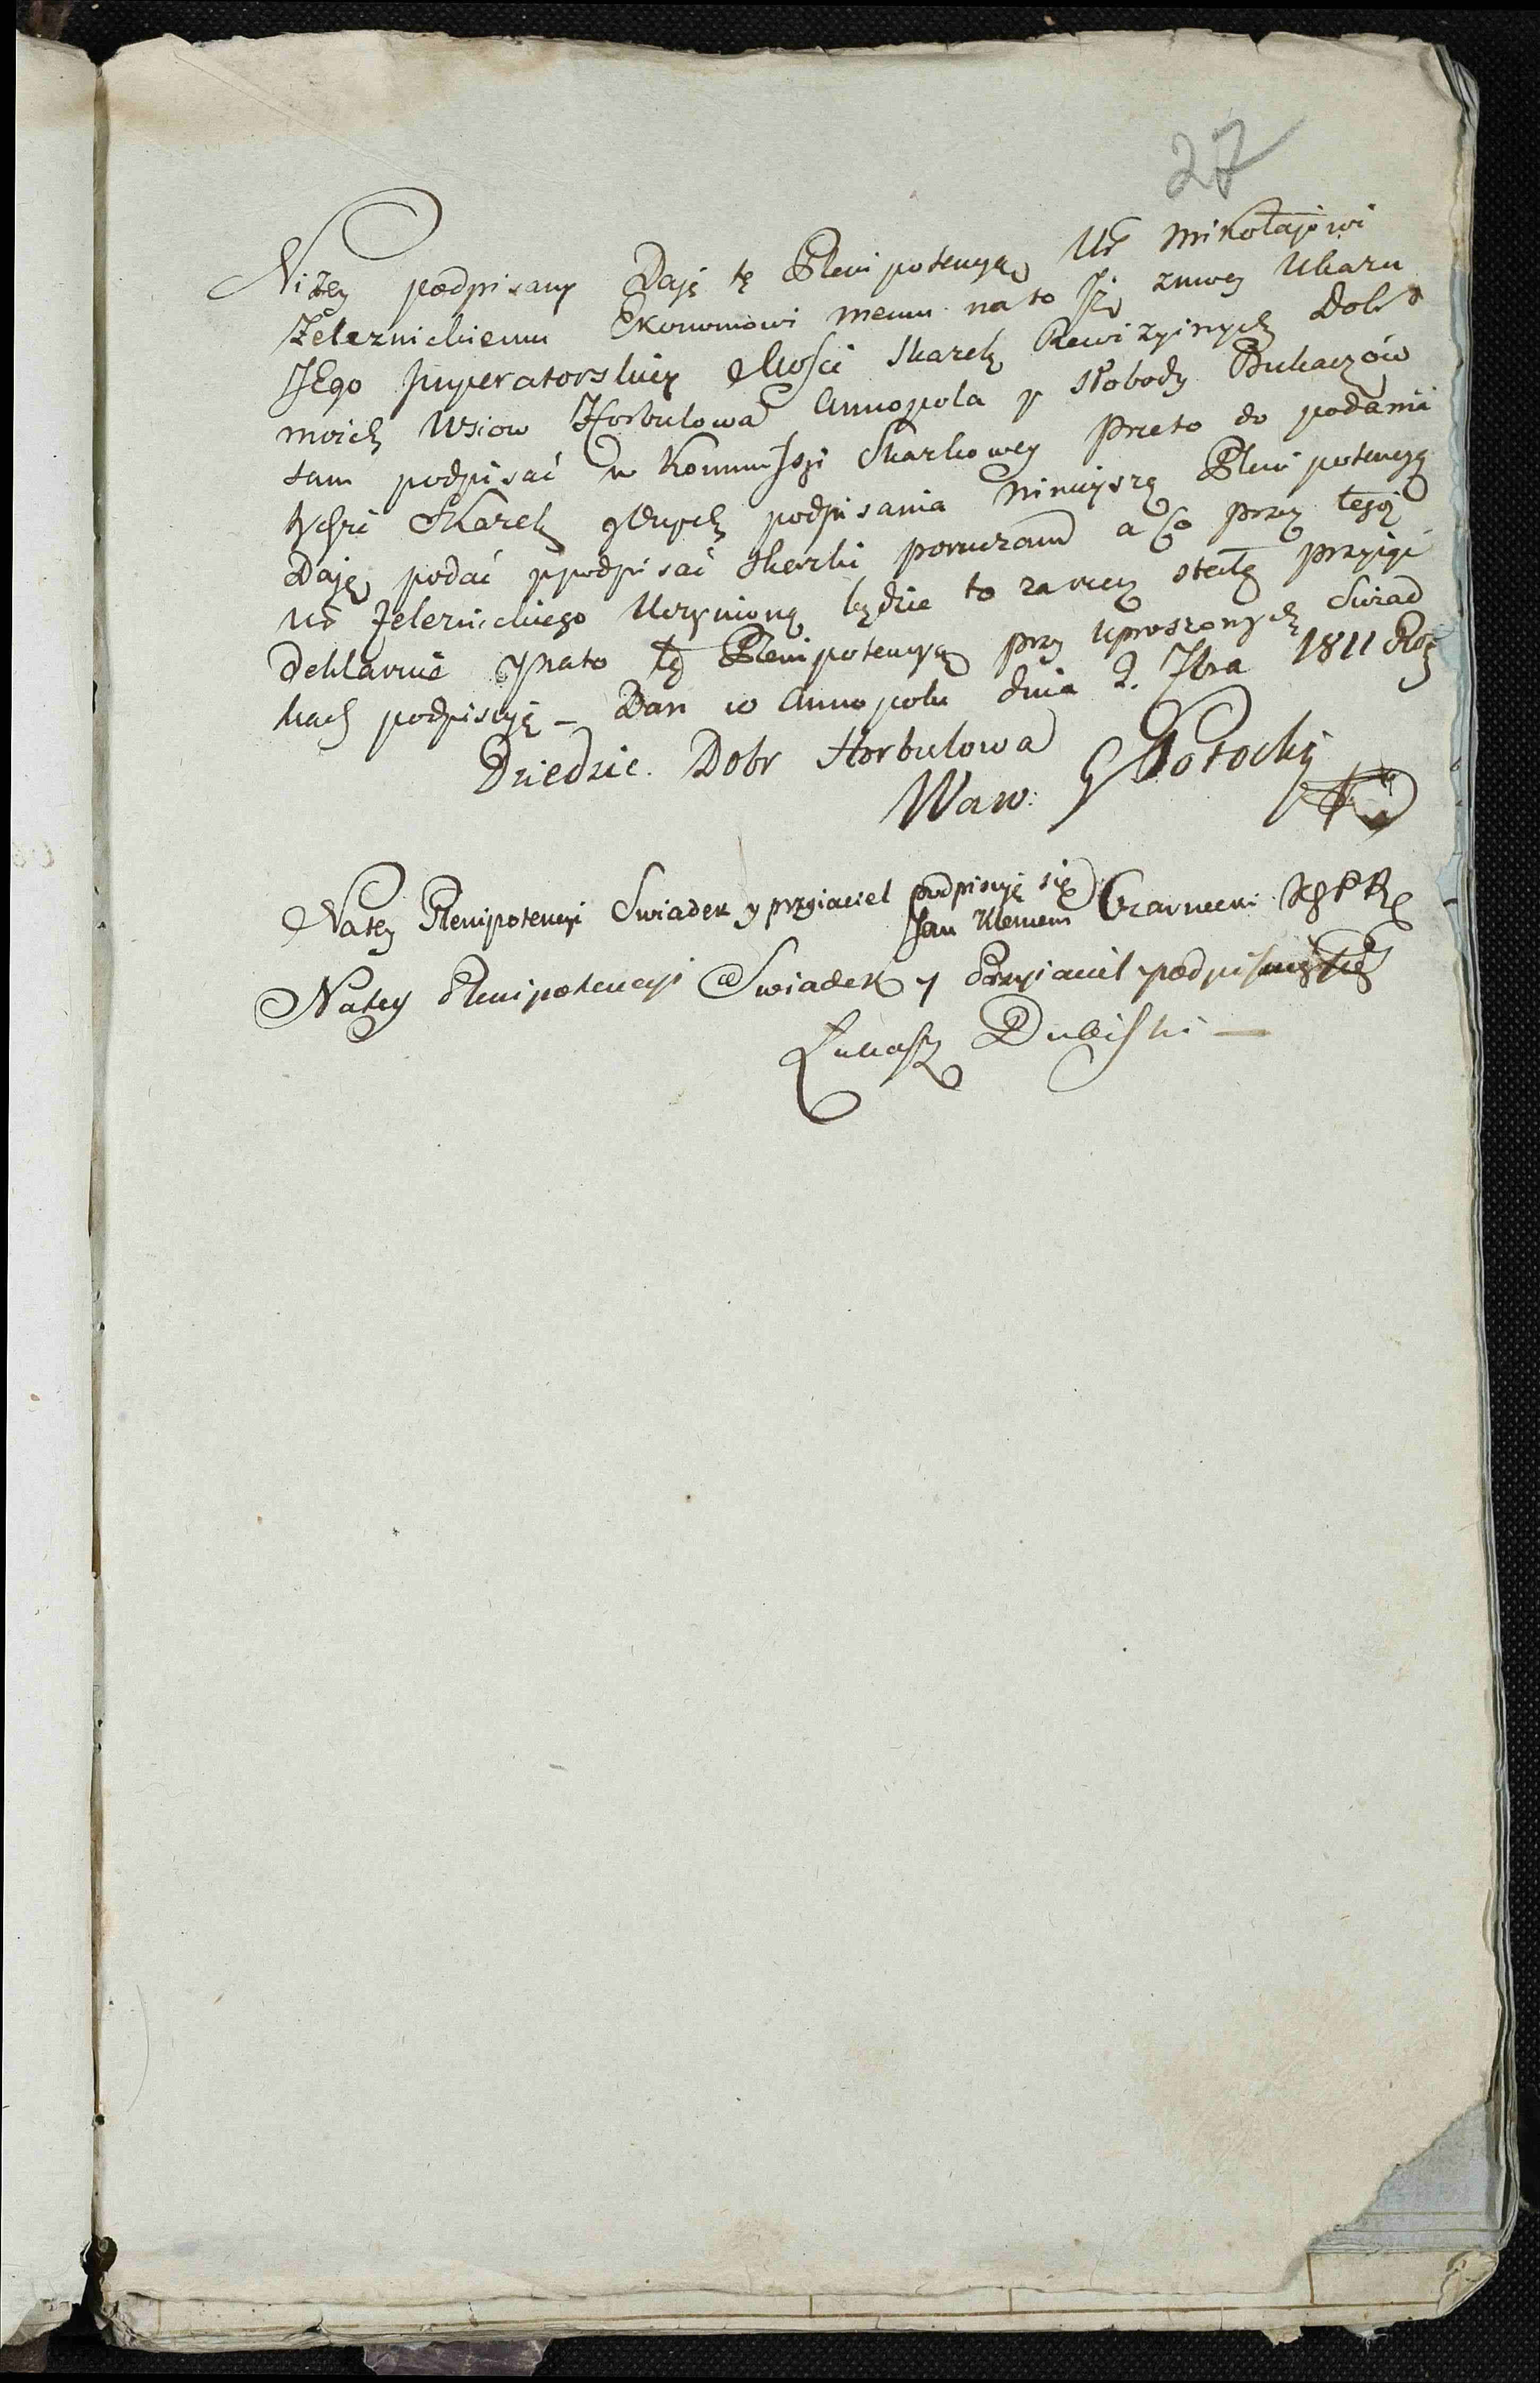 27
Niżey podpisany Daję tę Plenipotencyą Ur Mikołajowi
Zeleznickiemu Ekonomowi memu na to Iż zmocy Ukazu
JEgo Imperatorskiey Mości Skazek Rewizyinych Dobr
moich Wsiow Horbulowa Annopola y Słobody Bukaczów
sam podpisać w Kommissyi Skazkowey przeto do podania
tychże Skazek podpisania ninieyszą Plenipotencyą
Daję podać y podpisać Skazki poruczam a co przez tegoż
Ur Zeleznickiego Uczyniono będzie to za rzecz stałą przyiąć
deklaruie y na to tę Plenipotencyą przy uproszonych Swiad
kach podpisuię – Dan w Annopolu dnia 2. 7bra 1811 Ro
Dziedzic Dobr Horbulowa
Waw: Potocki
Na tey Plenipotencyi Swiadek y przyiaciel podpisuję się
Jan Klemens Czarnecki
Na tey Plenipotencyi Swiadek y Przyiaciel podpisuię się
Łukasz Dubiski –